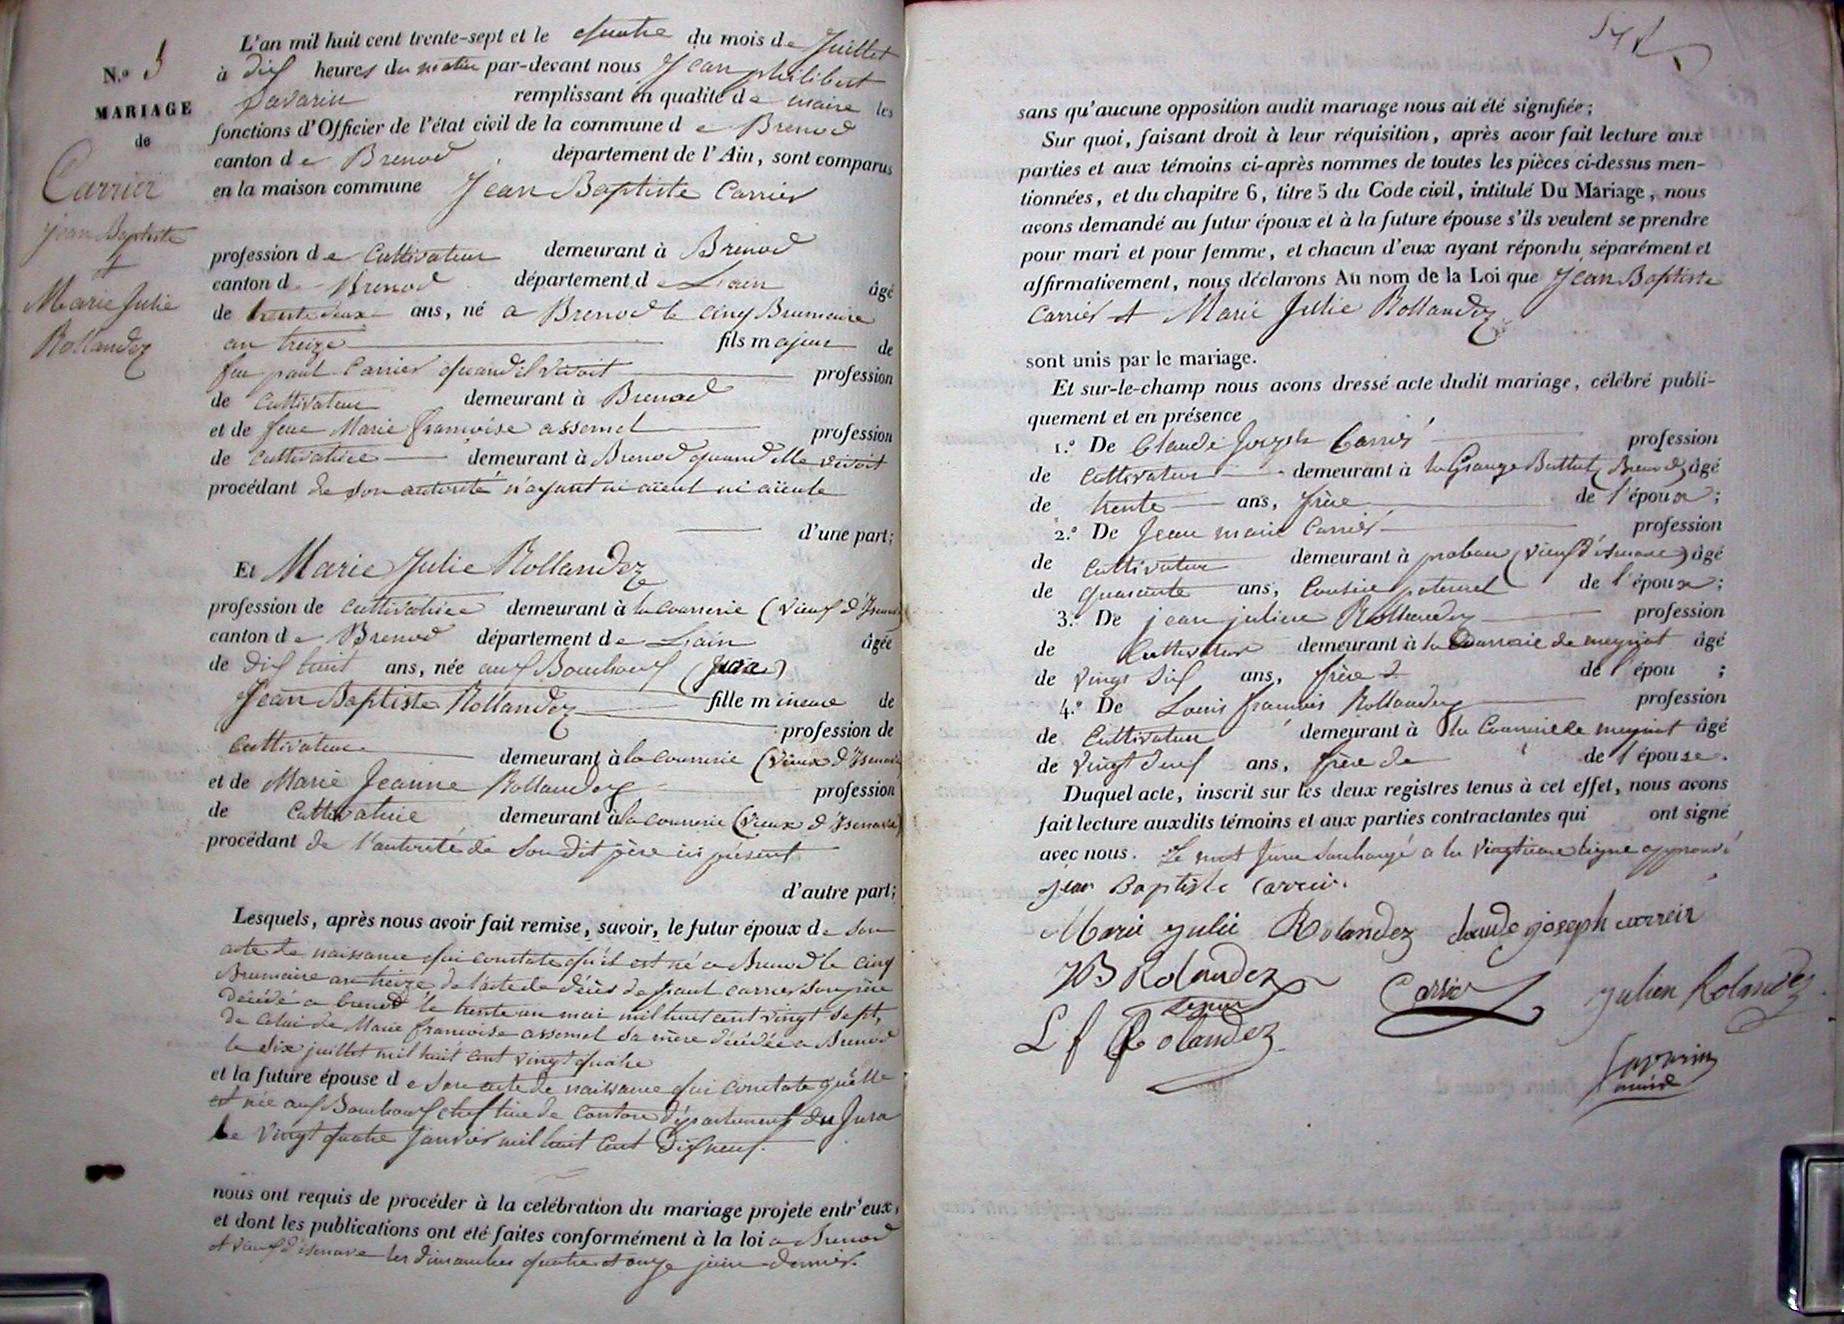 N.º 3
MARIAGE
de
Carrier
Jean Baptiste
et
Marie Julie
Rollandez
L'an mil huit cent trente-sept et le quatre du mois de Juillet
à dix heures du matin par-devant nous Jean philibert
Savarin remplissant en qualité de maire les
fonctions d'Officier de l'état civil de la commune de Brenod
canton de Brenod, département de l'Ain, sont comparus
en la maison commune Jean Baptiste Carrier
profession de Cultivateur demeurant à Brenod
canton de Brenod département de L'ain âgé
de trente deux ans, né a Brenod le cinq Brumaire
an treize fils majeur de
feu paul Carrier quand il vivoit profession
de Cultivateur demeurant à Brenod
et de feue Marie françoise assernel profession
de cultivatrice demeurant à Brenod quand elle vivoit
procédant de son autorité n'ayant ni aieul ni aieule
d'une part;
Et Marie Julie Rollandez
profession de cultivatrice demeurant à la courrerie (vieux d'Isenave
canton de Brenod département de L'ain âgée
de dix huit ans, née aux Bouchoux (Jura)
Jean Baptiste Rollandez fille mineure de
profession de
Cultivateur demeurant à la courrerie (vieux d'Isenave
et de Marie Jeanne Rollandez profession
de Cultivatrice demeurant à la courrerie (vieux d'Isenave)
procédant de l'autorité de son dit père ici présent
d'autre part;
Lesquels, après nous avoir fait remise, savoir, le futur époux de son
acte de naissance qui constate qu'il est né a Brenod le cinq
Brumaire an treize de l'acte de décès de paul carrier son père
décédé a brenod le trente un mai mil huit cent vingt sept,
de celui de Marie francoise assernel sa mère décédée a Brenod
le six juillet mil huit cent vingt quatre
et la future épouse de son acte de naissance qui constate qu'elle
est née aux Bouchoux chef lieu de canton département du Jura
Le vingt quatre janvier mil huit cent dix neuf.
nous ont requis de procéder à la celébration du mariage projeté entr'eux,
et dont les publications ont été faites conformément à la loi a Brenod
et vieux d'isenave les dimanches quatre et onze juin dernier.
sans qu'aucune opposition audit mariage nous ait été signifiée;
Sur quoi, faisant droit à leur réquisition, après avoir fait lecture aux
parties et aux témoins ci-après nommes de toutes les pièces ci-dessus men-
tionnées, et du chapitre 6, titre 5 du Code civil, intitulé Du Mariage, nous
avons demandé au futur époux et à la future épouse s'ils veulent se prendre
pour mari et pour femme, et chacun d'eux ayant répondu séparément et
affirmativement, nous déclarons Au nom de la Loi que Jean Baptiste
Carrier et Marie Julie Rollandez
sont unis par le mariage.
Et sur-le-champ nous avons dressé acte dudit mariage, célébré publi-
quement et en présence
1.º De Claude Joseph Carrier profession
de Cultivateur demeurant à la Grange (Brenod) âgé
de trente ans, frère de l'époux;
2.º De Jean marie Carrier profession
de Cultivateur demeurant à (vieux d'isenave) âgé
de quarante ans, Cousin paternel de l'époux;
3.º De jean julien Rollandez profession
de Cultivateur demeurant à la Courrerie de meyriat âgé
de vingt six ans, frère de l'épou ;
4.º De Louis françois Rollandez profession
de Cultivateur demeurant à la Courrerie de meyriat âgé
de vingt deux ans, frère de de l'épouse.
Duquel acte, inscrit sur les deux registres tenus à cet effet, nous avons
fait lecture auxdits témoins et aux parties contractantes qui ont signé
avec nous. Le mot Jura surchargé a la vingtieme ligne approuvé
jean Baptiste Carrier.
Marie julie Rolandez claude joseph carreir
JB Rolandez
Carrier julien Rolandez
L f Rolandez
Savarin
maire